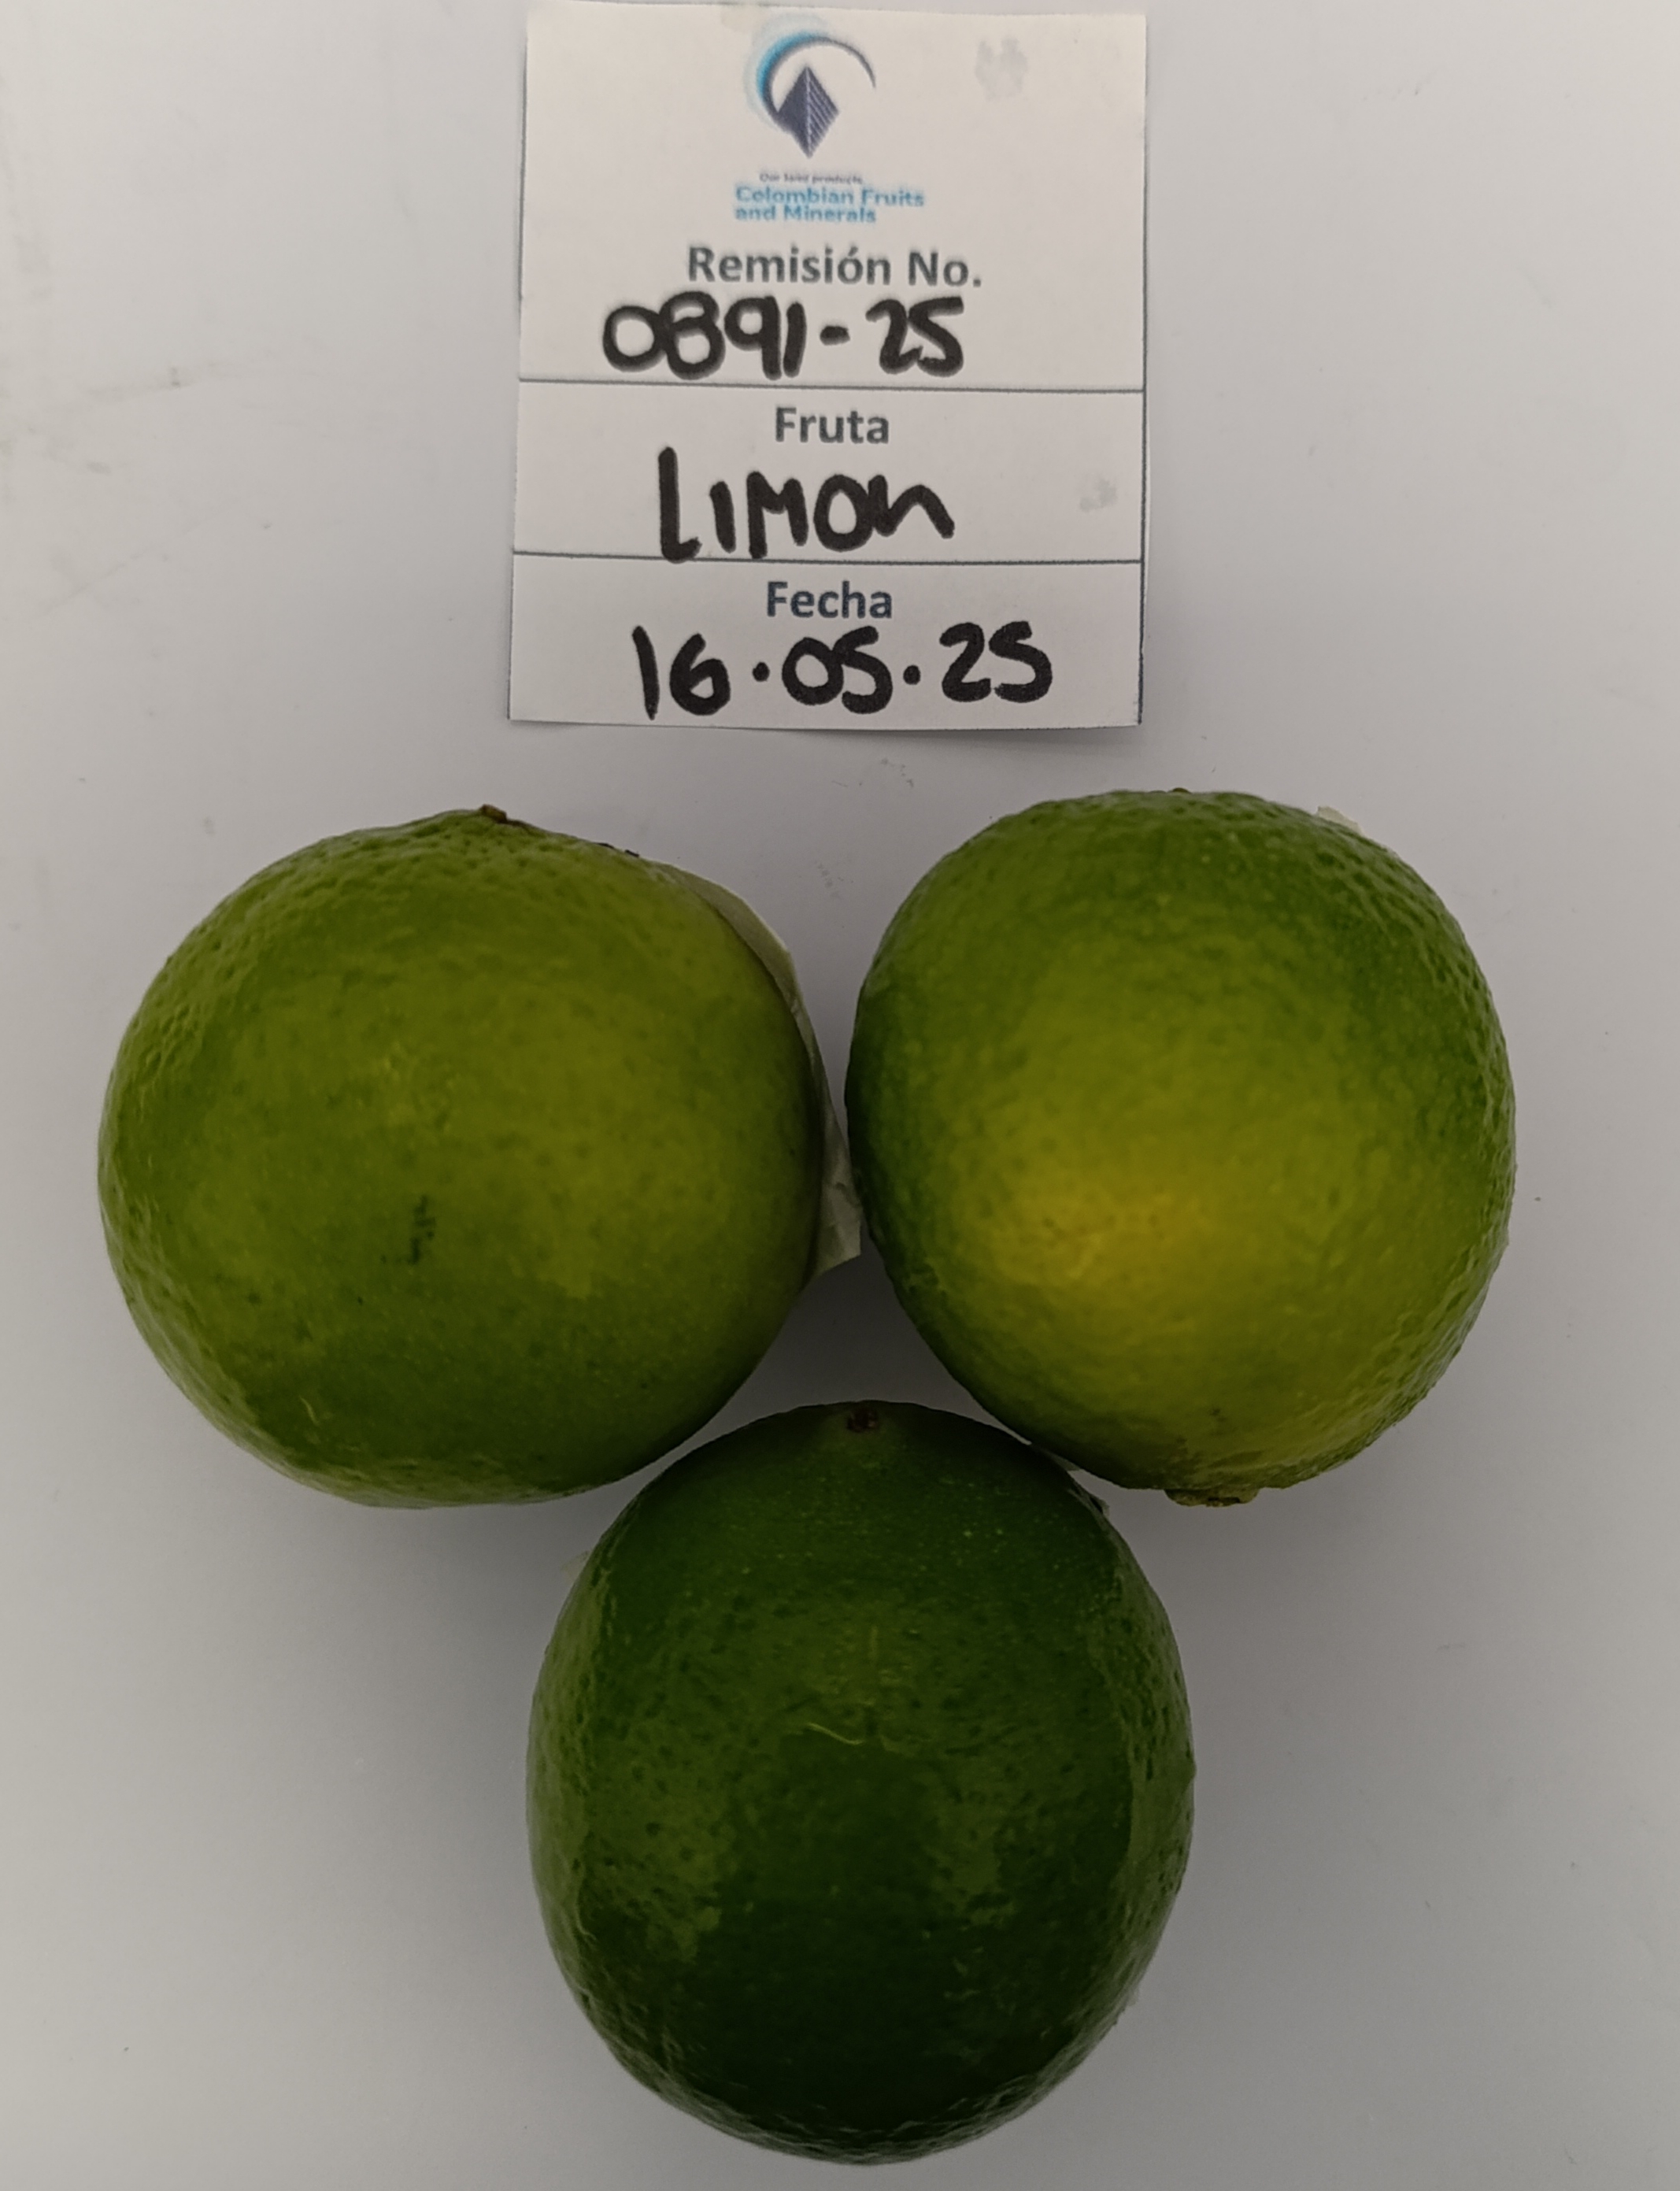 Our land products
Colombian Fruits
and Minerals
Remisión No.
0891-25
Fruta
LIMON
Fecha
16.05.25